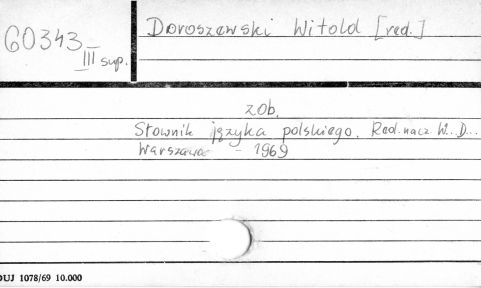 60343
III sup.
Doroszewski Witold [red.]
zob.
Słownik języka polskiego. Red. nacz. W.. D...
Warszawa - 1969
DUJ 1078/69 10.000